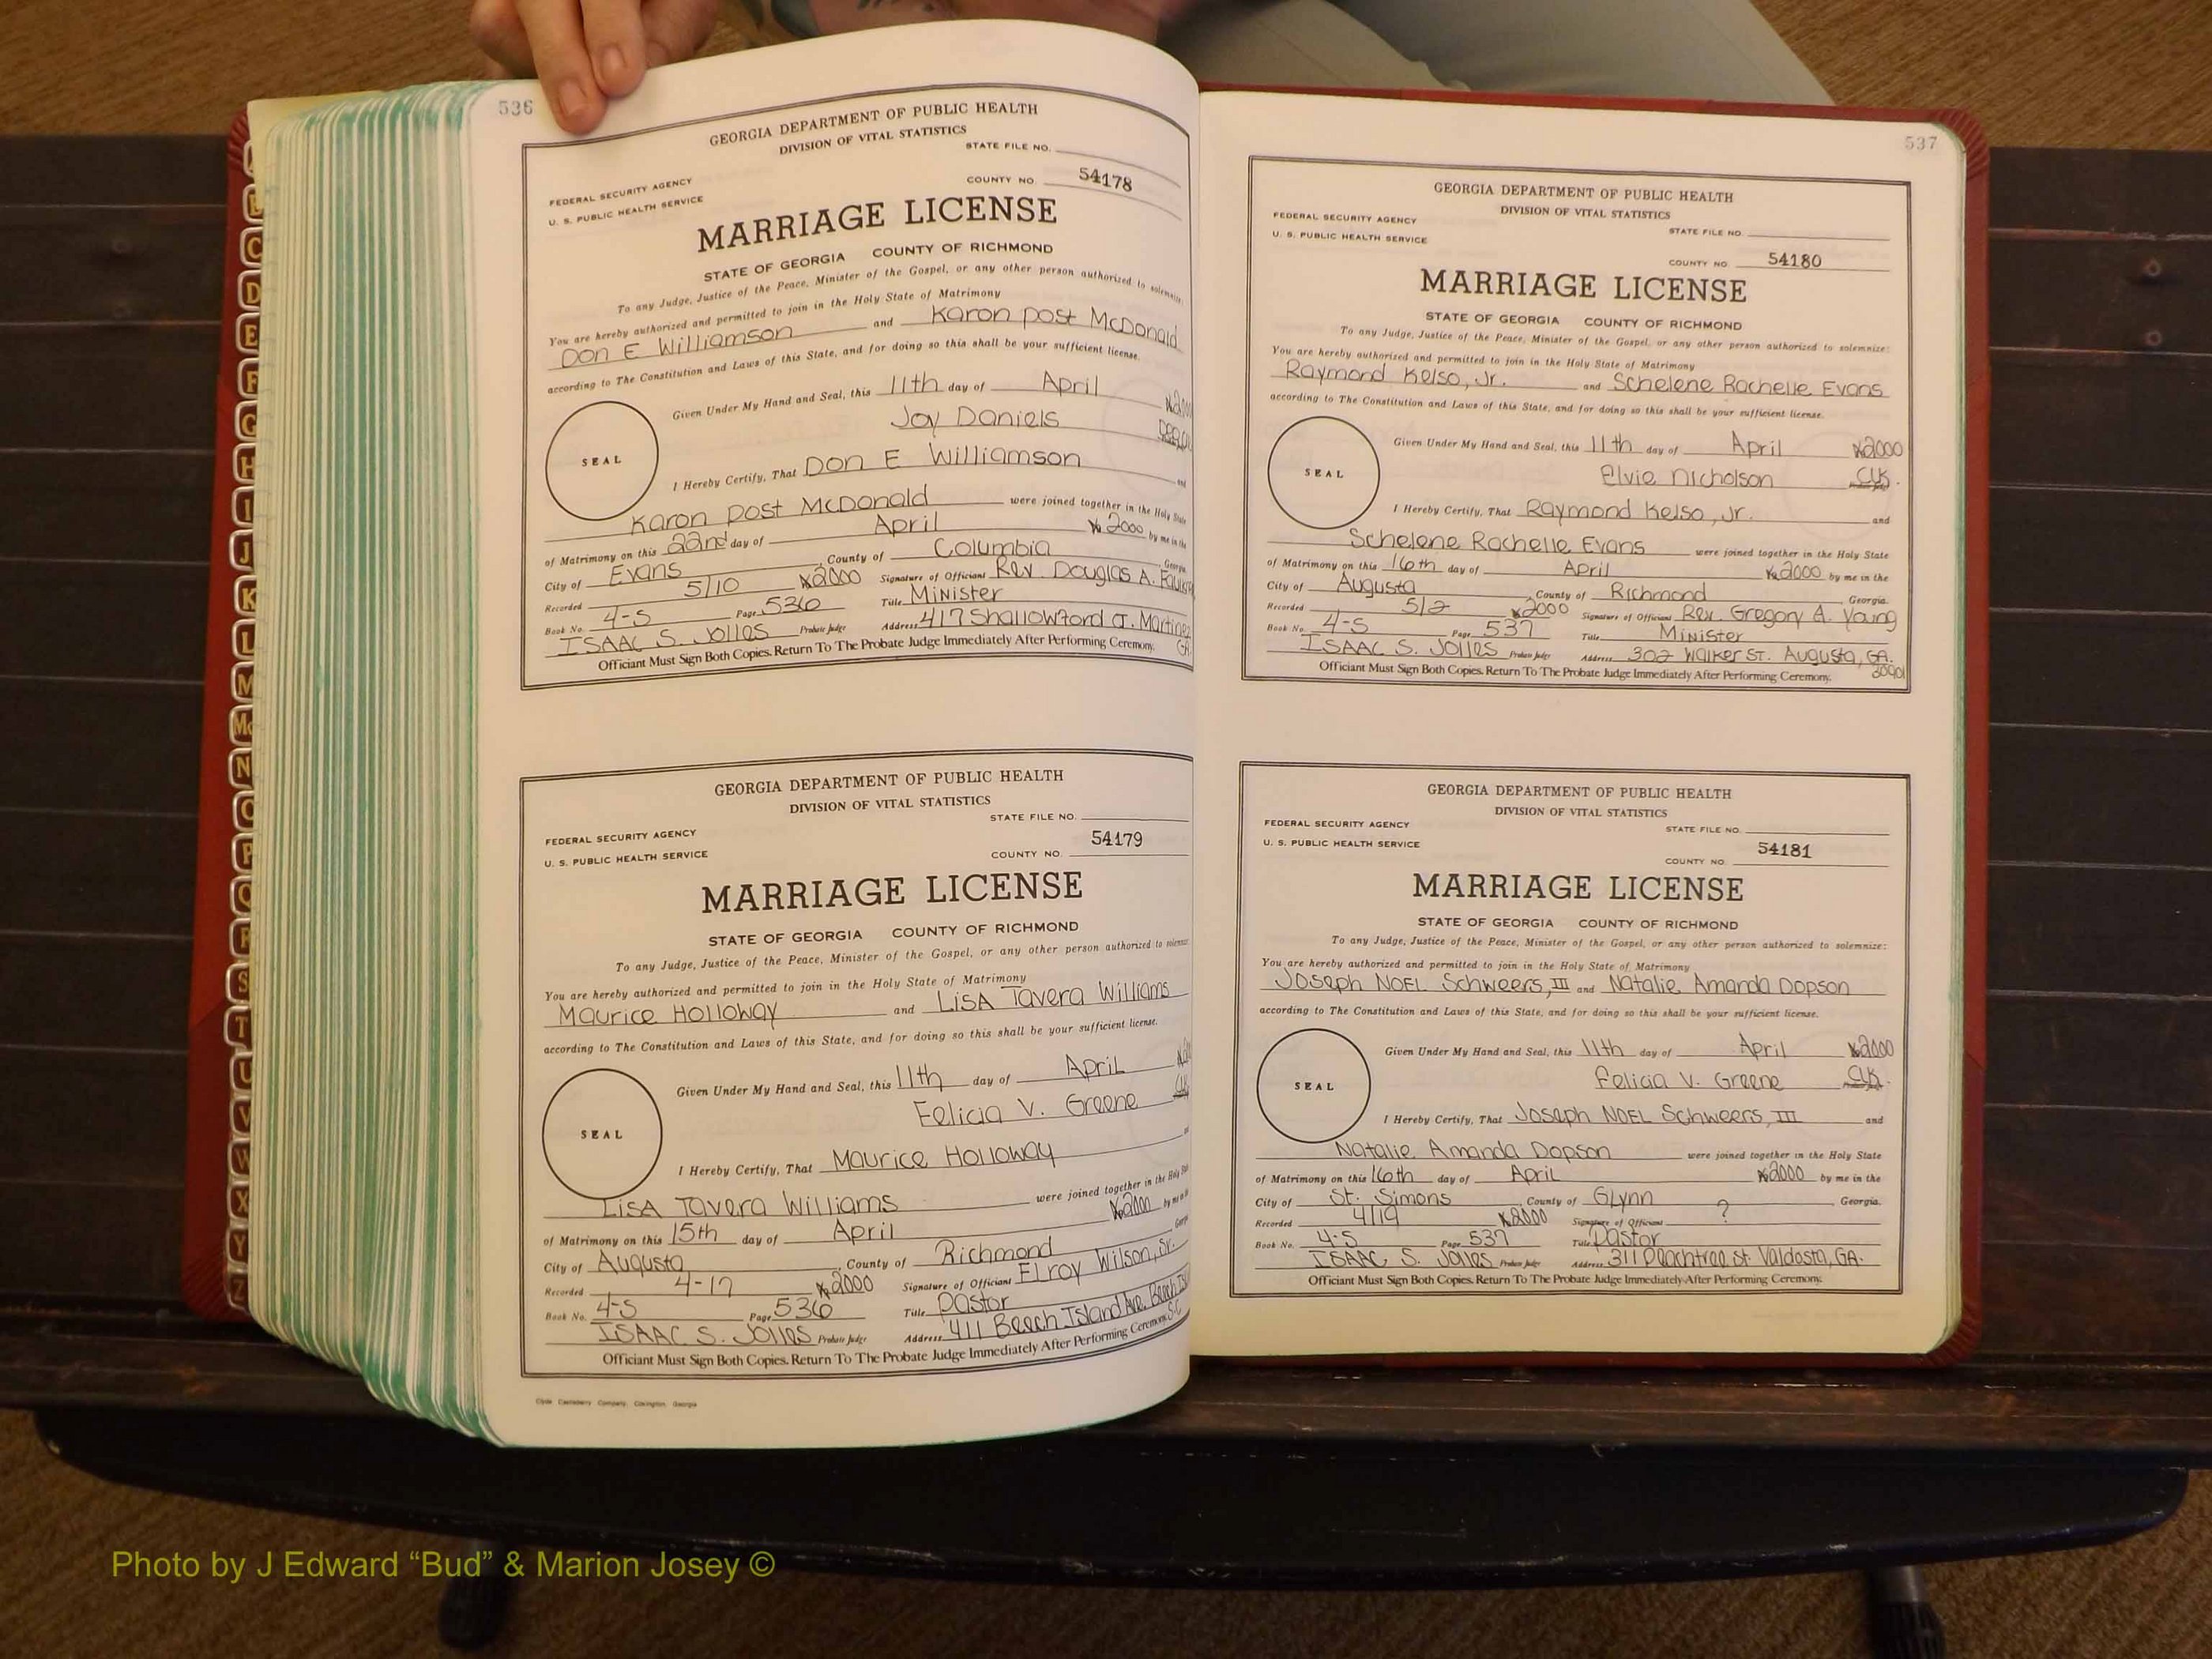 536
GEORGIA DEPARTMENT OF PUBLIC HEALTH
DIVISION OF VITAL STATISTICS
STATE FILE NO.
FEDERAL SECURITY AGENCY
U. S. PUBLIC HEALTH SERVICE
COUNTY NO. 54178
MARRIAGE LICENSE
STATE OF GEORGIA COUNTY OF RICHMOND
To any Judge, Justice of the Peace, Minister of the Gospel, or any other person authorized to solemnize:
You are hereby authorized and permitted to join in the Holy State of Matrimony
Don E Williamson and Karon post McDonald
according to The Constitution and Laws of this State, and for doing so this shall be your sufficient license.
Given Under My Hand and Seal, this 11th day of April
Joy Daniels
SEAL
I Hereby Certify, That Don E Williamson and
Karon post McDonald were joined together in the Holy State
of Matrimony on this 22nd day of April 2000 by me in the
City of Evans County of Columbia Georgia.
Recorded 5/10 2000 Signature of Officiant Rev. Douglas A.
Book No. 4-S Page 536 Title Minister
ISAAC S. Jolles Probate Judge Address 417 Shallowford Ct. Martinez GA.
Officiant Must Sign Both Copies. Return To The Probate Judge Immediately After Performing Ceremony.
GEORGIA DEPARTMENT OF PUBLIC HEALTH
DIVISION OF VITAL STATISTICS
STATE FILE NO.
FEDERAL SECURITY AGENCY
U. S. PUBLIC HEALTH SERVICE
COUNTY NO. 54179
MARRIAGE LICENSE
STATE OF GEORGIA COUNTY OF RICHMOND
To any Judge, Justice of the Peace, Minister of the Gospel, or any other person authorized to solemnize:
You are hereby authorized and permitted to join in the Holy State of Matrimony
Maurice Holloway and LISA Tavera Williams
according to The Constitution and Laws of this State, and for doing so this shall be your sufficient license.
Given Under My Hand and Seal, this 11th day of April
Felicia V. Greene Clk
SEAL
I Hereby Certify, That Maurice Holloway and
LISA Tavera Williams were joined together in the Holy State
of Matrimony on this 15th day of April 2000 by me in the
City of Augusta County of Richmond Georgia
Recorded 4-17 2000 Signature of Officiant Elroy Wilson, Sr.
Book No. 4-S Page 536 Title Pastor
ISAAC S. Jolles Probate Judge Address 411 Beech Island Ave. Beech Isl S.C
Officiant Must Sign Both Copies. Return To The Probate Judge Immediately After Performing Ceremony.
Clyde Castleberry Company, Covington, Georgia
537
GEORGIA DEPARTMENT OF PUBLIC HEALTH
DIVISION OF VITAL STATISTICS
FEDERAL SECURITY AGENCY
STATE FILE NO.
U. S. PUBLIC HEALTH SERVICE
COUNTY NO. 54180
MARRIAGE LICENSE
STATE OF GEORGIA COUNTY OF RICHMOND
To any Judge, Justice of the Peace, Minister of the Gospel, or any other person authorized to solemnize:
You are hereby authorized and permitted to join in the Holy State of Matrimony
Raymond Kelso, Jr. and Schelene Rochelle Evans
according to The Constitution and Laws of this State, and for doing so this shall be your sufficient license.
Given Under My Hand and Seal, this 11th day of April 2000
Elvie Nicholson Clk.
SEAL
I Hereby Certify, That Raymond Kelso, Jr. and
Schelene Rochelle Evans were joined together in the Holy State
of Matrimony on this 16th day of April 2000 by me in the
City of Augusta County of Richmond Georgia.
Recorded 5/2 2000 Signature of Officiant Rev. Gregory A. Young
Book No. 4-S Page 537 Title Minister
ISAAC S. Jolles Probate Judge Address 302 Walker ST. Augusta, GA. 30901
Officiant Must Sign Both Copies. Return To The Probate Judge Immediately After Performing Ceremony.
GEORGIA DEPARTMENT OF PUBLIC HEALTH
DIVISION OF VITAL STATISTICS
FEDERAL SECURITY AGENCY
STATE FILE NO.
U. S. PUBLIC HEALTH SERVICE
COUNTY NO. 54181
MARRIAGE LICENSE
STATE OF GEORGIA COUNTY OF RICHMOND
To any Judge, Justice of the Peace, Minister of the Gospel, or any other person authorized to solemnize:
You are hereby authorized and permitted to join in the Holy State of Matrimony
Joseph NOEL Schweers, III and Natalie Amanda Dopson
according to The Constitution and Laws of this State, and for doing so this shall be your sufficient license.
Given Under My Hand and Seal, this 11th day of April 2000
Felicia V. Greene Clk.
SEAL
I Hereby Certify, That Joseph NOEL Schweers, III and
Natalie Amanda Dopson were joined together in the Holy State
of Matrimony on this 16th day of April 2000 by me in the
City of St. Simons County of Glynn Georgia.
Recorded 4/19 2000 Signature of Officiant ?
Book No. 4-S Page 537 Title Pastor
ISAAC S. Jolles Probate Judge Address 311 Peachtree St. Valdosta, GA.
Officiant Must Sign Both Copies. Return To The Probate Judge Immediately After Performing Ceremony.
C
D
E
F
G
H
I
J
K
L
M
Mc
N
O
P
Q
R
S
T
U
V
W
X
Y
Z
Photo by J Edward “Bud” & Marion Josey ©